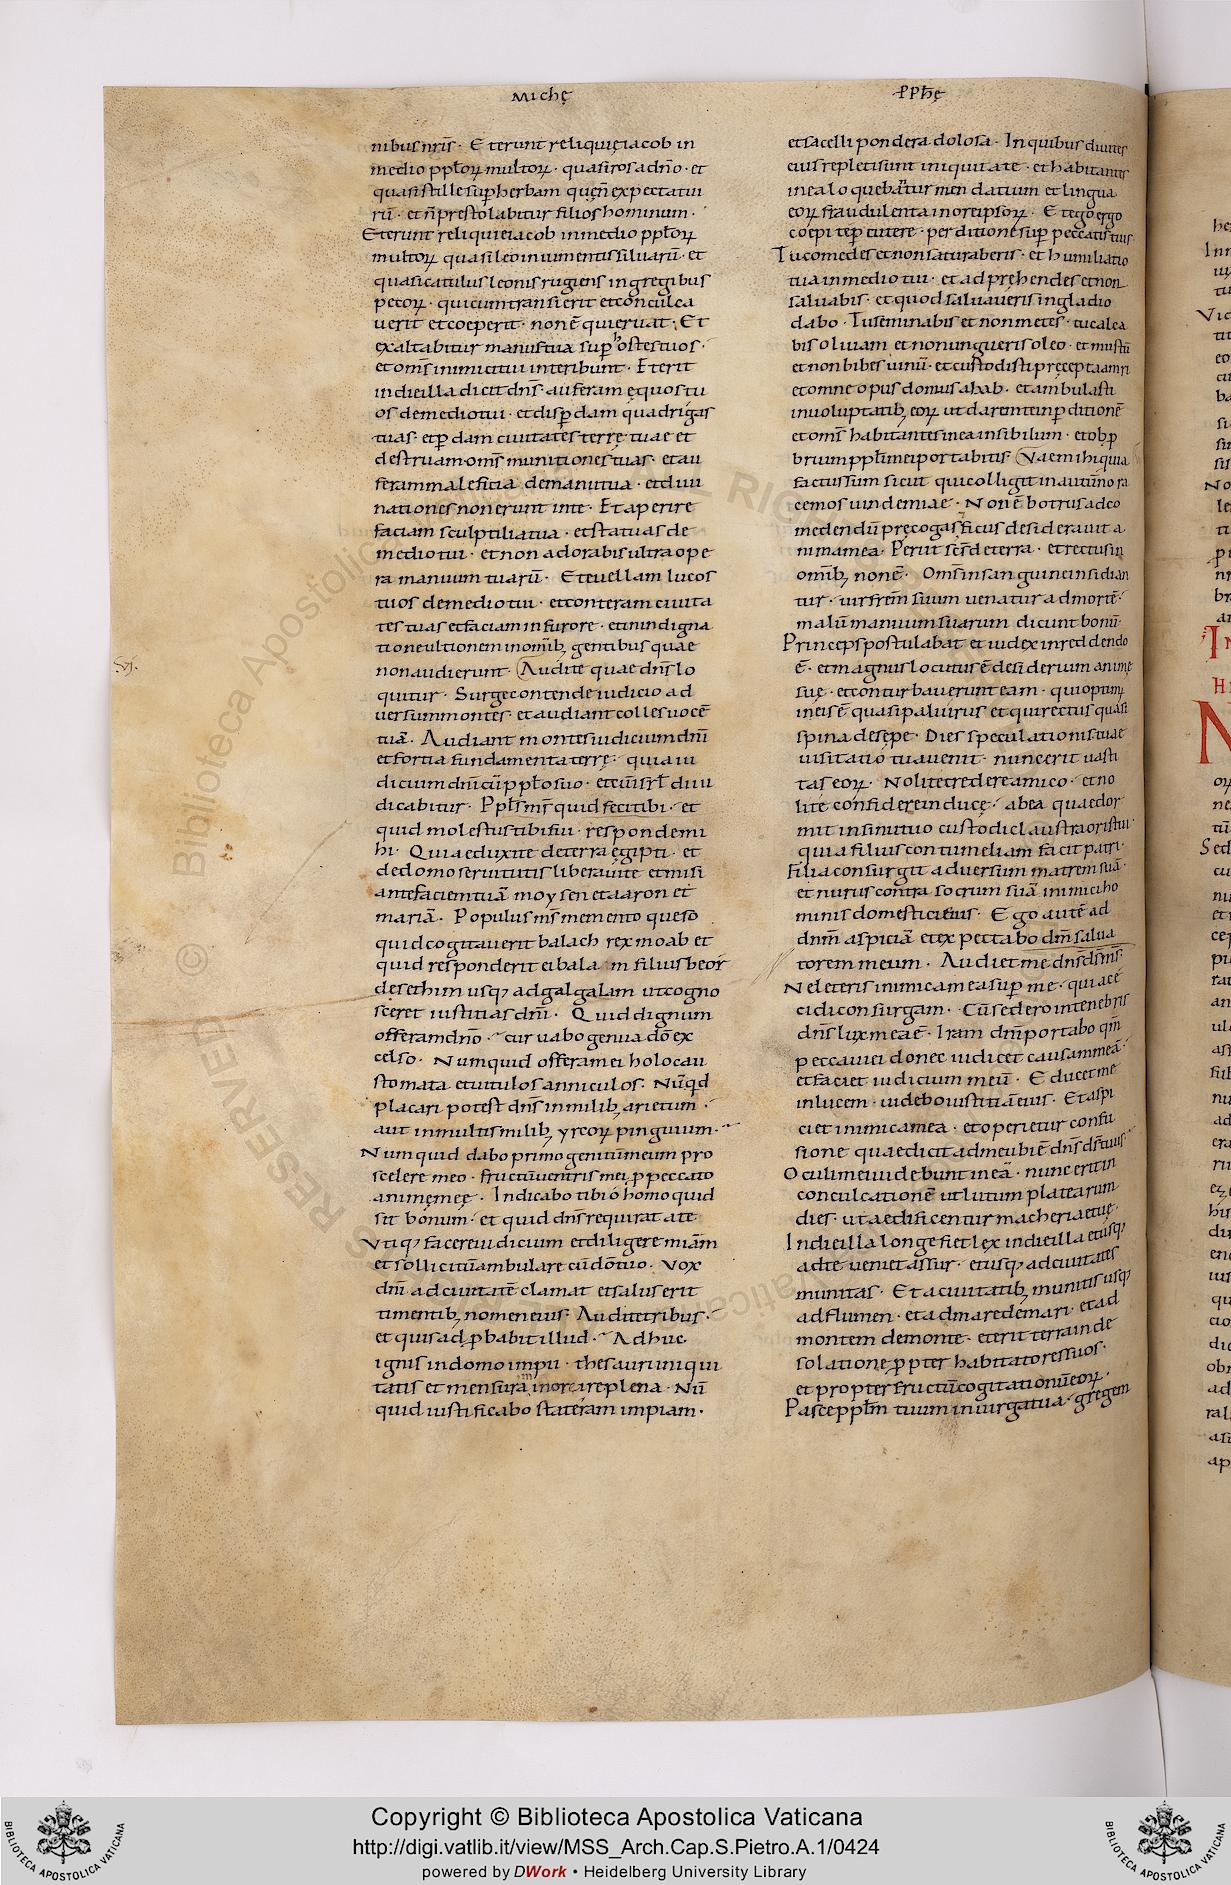 Michę
PPħę
nibus nr̄is · Et erunt reliquię iacob in
medio pplorꝝ multorꝝ · quasi ros a dn̄o · et
quasi stille sup̄ herbam quęn̄ expectat ui
rū · et n̄ prestolabitur filios hominum ·
Et erunt reliquie iacob in medio pplorꝝ
multorꝝ quasi leo in iumentis siluarū · et
quasi catulus leonis rugiens in gregibus
pecorꝝ · qui cum transierit et conculca
uerit et coeperit · non ē qui eruat · Et
exaltabitur manus tua sup̄ hostes tuos ·
et om̄s inimici tui interibunt · Et erit
in die illa dicit dn̄s · auferam ęquos tu
os de medio tui · et disp̄dam quadrigas
tuas · et p̄dam ciuitates terrę tuae et
destruam om̄s munitiones tuas · et au
feram maleficia de manu tua · et diui
nationes non erunt in te · Et aperire
faciam sculptilia tua · et statuas de
medio tui · et non adorabis ultra ope
ra manuum tuarū · Et euellam lucos
tuos de medio tui · et conteram ciuita
tes tuas et faciam in furore · et in indigna
tione ultionem in omīb; gentibus quae
non audierunt · Audite quae dn̄s lo
quitur · Surge contende iudicio ad
uersum montes · et audiant colles uocē
tuā · Audiant montes iudicium dn̄i
et fortia fundamenta terrę · quia iu
dicium dn̄i cū pplo suo · et cū isrl̄ diiu
dicabitur · Ppls ms̄ quid feci tibi · et
quid molestus tibi fui · responde mi
hi · Quia eduxi te de terra ęgipti · et
de domo seruitutis liberaui te et misi
ante faciem tuā moysen et aaron et
mariā · Populus ms̄ memento queso
quid cogitauerit balach rex moab et
quid responderit ei bala m filius beor
de sethim usq; ad galgalam ut cogno
sceret iustitias dn̄i · Quid dignum
offeram dn̄o · curuabo genua dō ex
celso · Numquid offeram ei holocau
stomata et uitulos anniculos · Nūqd
placari potest dn̄s in milib; arietum ·
aut in multis milib; yrcorꝝ pinguium ·
Numquid dabo primogenitū meum pro
scelere meo · fructū uentris mei p̄ peccato
animę meę · Indicabo tibi ó homo quid
sit bonum · et quid dn̄s requirat a te
Vtiq; facere iudicium et diligere miām
et sollicitū ambulare cū dō tuo · Vox
dn̄i ad ciuitatē clamat et salus erit
timentib; nomen eius · Audite tribus ·
et quis adp̄babit illud · Adhuc
ignis in domo impii · thesauri iniqui
tatis et mensura minor irę plena · Nū
quid iustificabo stateram impiam ·
et sacelli pondera dolosa · In quibus diuites
eius repleti sunt iniquitate · et habitantes
in ea loquebātur mendatium et lingua
eorꝝ fraudulenta in ore ipsorꝝ · Et ego ergo
coepi te p̄cutere · perditione sup̄ peccatis tuis
Tu comedes et non saturaberis · et humiliatio
tua in medio tui · et adprehendes et non
saluabis · et quos saluaueris in gladio
dabo · Tu seminabis et non metes · tu calca
bis oliuam et non ungueris oleo · et mustū
et non bibes uinū · et custodisti precepta amri
et omne opus domus ahab · et ambulasti
in uoluptatib; eorꝝ ut darem te in p̄ditionē
et om̄s habitantes in ea in sibilum · et obp̄
brium ppli mei portabitis · Vae mihi quia
factus sum sicut qui colligit in autūno ra
cemos uindemiae · Non ē botrus ad co
medendū precoqas ficus desiderauit a
nima mea · Periit scs̄ de terra · et rectus in
omīb; non ē · Om̄s in sanguine insidian
tur · uir frēm suum uenatur ad mortē ·
malū manuum suarum dicunt bonū ·
Princeps postulabat et iudex in reddendo
ē · et magnus locutus ē desiderium anime
suę · et conturbauerunt eam · qui optimꝰ
in eis ē quasi paliurus et qui rectus quasi
spina de sepe · Dies speculationis tuae
uisitatio tua uenit · nunc erit uasti
tas eorꝝ · Nolite credere amico · et no
lite confidere in duce · ab ea quae dor
mit in sinu tuo custodi claustra oris tui
quia filius contumeliam facit patri ·
Filia consurgit aduersum matrem suā ·
et nurus contra socrum suā inimici ho
minis domestici eius · Ego autē ad
dnm̄ aspiciā et expectabo dm̄ salua
torem meum · Audiet me dn̄s ds̄ ms̄ ·
Ne leteris inimica mea sup̄ me · quia ce
cidi consurgam · Cū sedero in tenebris
dn̄s lux mea ē · Iram dn̄i portabo qm̄
peccaui ei donec iudicet causam meā ·
et faciet iudicium meū · Educet me
in lucem · uidebo iustitiā eius · Et aspi
ciet inimica mea · et operietur confu
sione quae dicit ad me ubi ē dn̄s ds̄ tuus ·
Oculi mei uidebunt in eā · nunc erit in
conculcationē ut lutum platearum
dies · ut aedificentur maceriae tuę ·
In die illa longe fiet lex in die illa et usq;
ad te ueniet assur · et usq; ad ciuitates
munitas · Et a ciuitatib; munitis usq;
ad flumen · et ad mare de mari · et ad
montem de monte · et erit terra in de
solatione p̄pter habitatores suos ·
et propter fructū cogitationū eorꝝ ·
Pasce pplm̄ tuum in uirga tua · gregem
Copyright © Biblioteca Apostolica Vaticana
http://digi.vatlib.it/view/MSS_Arch.Cap.S.Pietro.A.1/0424
powered by DWork • Heidelberg University Library